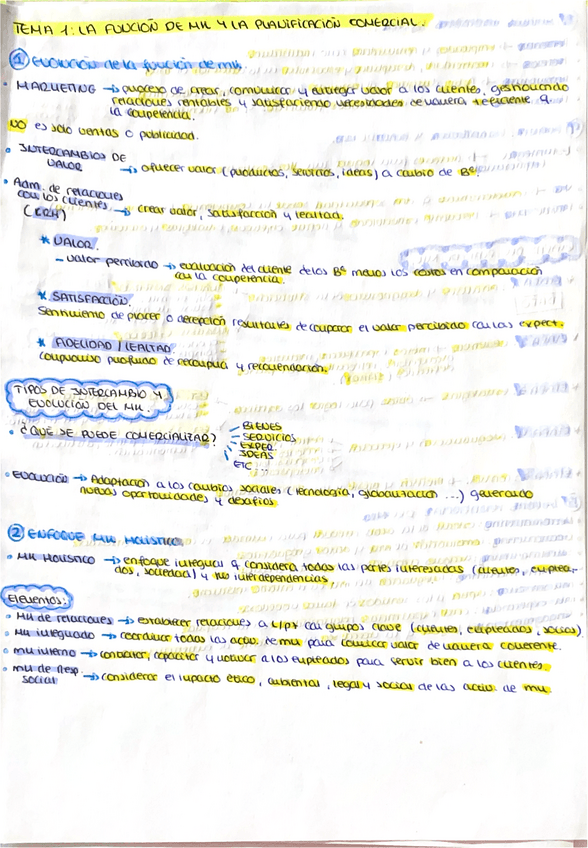 TEMA 1: LA FUNCIÓN DE MK Y LA PLANIFICACIÓN COMERCIAL.
① Evolución de la función de mk.
• MARKETING → proceso de crear, comunicar y entregar valor a los clientes, gestionando
relaciones rentables y satisfaciendo necesidades de manera + eficiente q
la competencia.
NO es solo ventas o publicidad.
• INTERCAMBIOS DE
VALOR → ofrecer valor (productos, servicios, ideas) a cambio de Bº.
• Adm. de relaciones
con los clientes
(CRM) → crear valor, satisfacción y lealtad.
* VALOR.
- valor percibido → evaluación del cliente de los Bº menos los costos en comparación
con la competencia.
* SATISFACCIÓN.
Sentimiento de placer o decepción resultantes de comparar el valor percibido con las expect.
* FIDELIDAD / LEALTAD.
Compromiso profundo de recompra y recomendación.
TIPOS DE INTERCAMBIO Y
EVOLUCIÓN DEL MK.
• ¿QUÉ SE PUEDE COMERCIALIZAR?
- BIENES
- SERVICIOS
- EXPER.
- IDEAS
ETC
• EVOLUCIÓN → Adaptación a los cambios sociales (tecnología, globalización ...) generando
nuevas oportunidades y desafíos.
② ENFOQUE MK HOLÍSTICO.
• MK HOLÍSTICO → enfoque integral q considera todas las partes interesadas (clientes, emplea-
dos, sociedad) y sus interdependencias.
Elementos:
• MK de relaciones → establecer relaciones a L/P con grupos clave (clientes, empleados, socios)
• MK integrado → coordinar todas las activ. de mk para comunicar valor de manera coherente.
• mk interno → contratar, capacitar y motivar a los empleados para servir bien a los clientes.
• mk de Resp.
social → considerar el impacto ético, ambiental, legal y social de las activ. de mk.